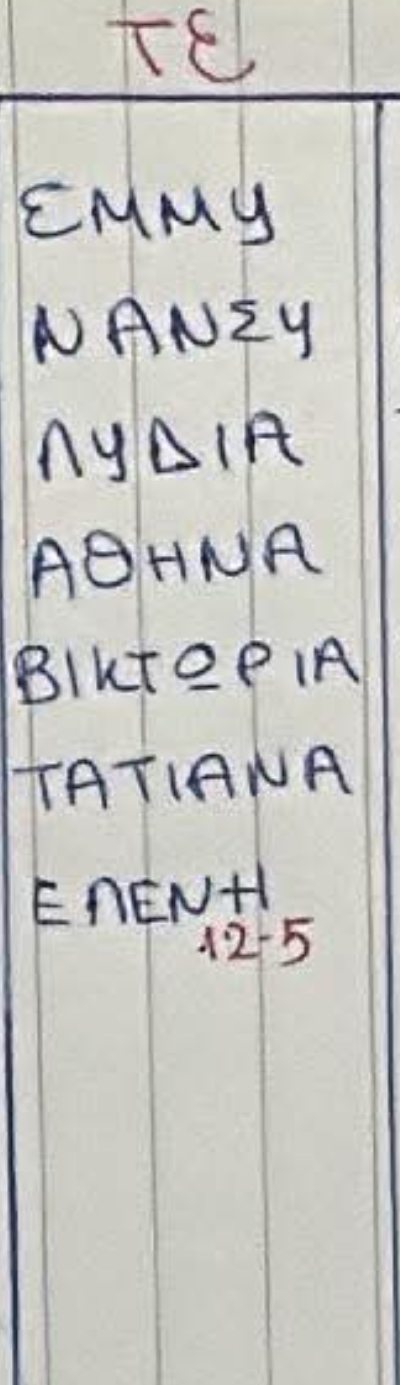 ΤΕ
ΕΜΜΥ
ΝΑΝΣΥ
ΛΥΔΙΑ
ΑΘΗΝΑ
ΒΙΚΤΩΡΙΑ
ΤΑΤΙΑΝΑ
ΕΛΕΝΗ
12-5